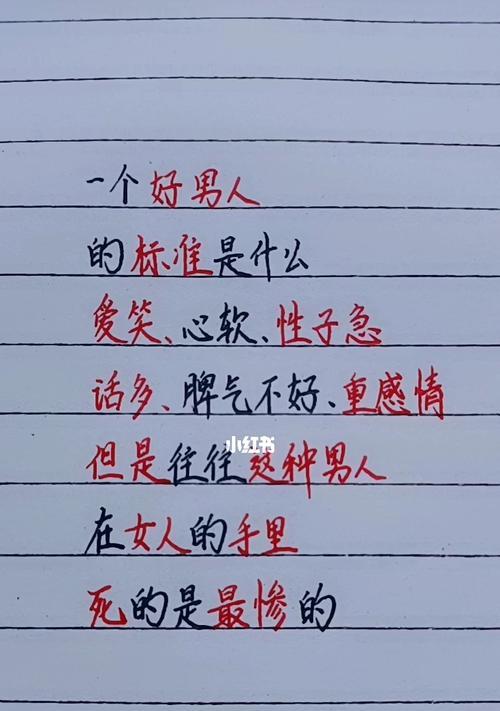 一个好男人
的标准是什么
爱笑、心软、性子急
话多、脾气不好、重感情
小红书
但是往往这种男人
在女人的手里
死的是最惨的